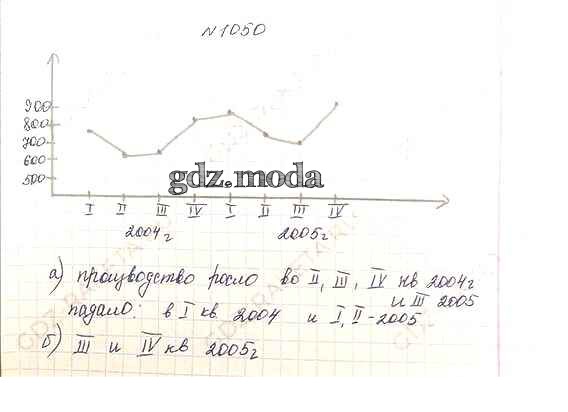 N 1050
900
800
700
600
500
gdz.moda
I II III IV I II III IV
2004 г 2005 г
а) производство росло во II, III, IV кв 2004 г
и III 2005
падало: в I кв 2004 и I, II - 2005
б) III и IV кв 2005 г